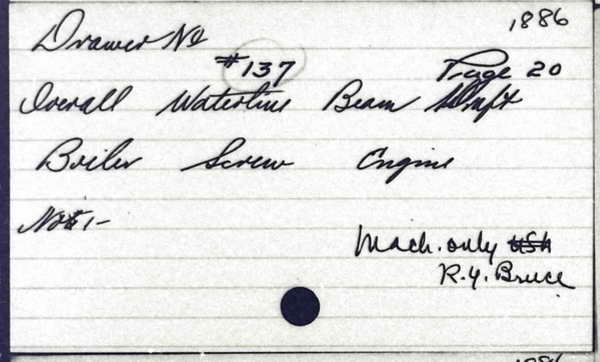 1886
Drawer No
#137 Page 20
Overall Waterline Beam Draft
Boiler Screw Engine
No 1-
Mach. only USN
R.Y. Bruce
1886